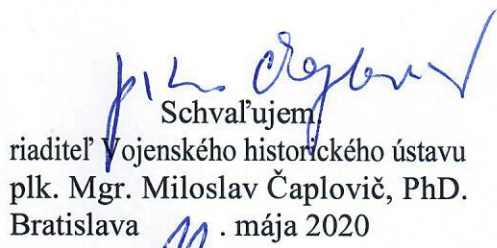 Schvaľujem,
riaditeľ Vojenského historického ústavu
plk. Mgr. Miloslav Čaplovič, PhD.
Bratislava 11. mája 2020